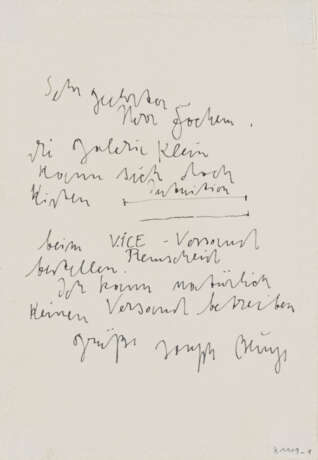 Sehr geehrter
Herr Jochem.
die Galerie Klein
kann sich doch
Kisten intuition
beim VICE-Versand
bestellen. Remscheid
Ich kann natürlich
keinen Versand betreiben
Grüße Joseph Beuys